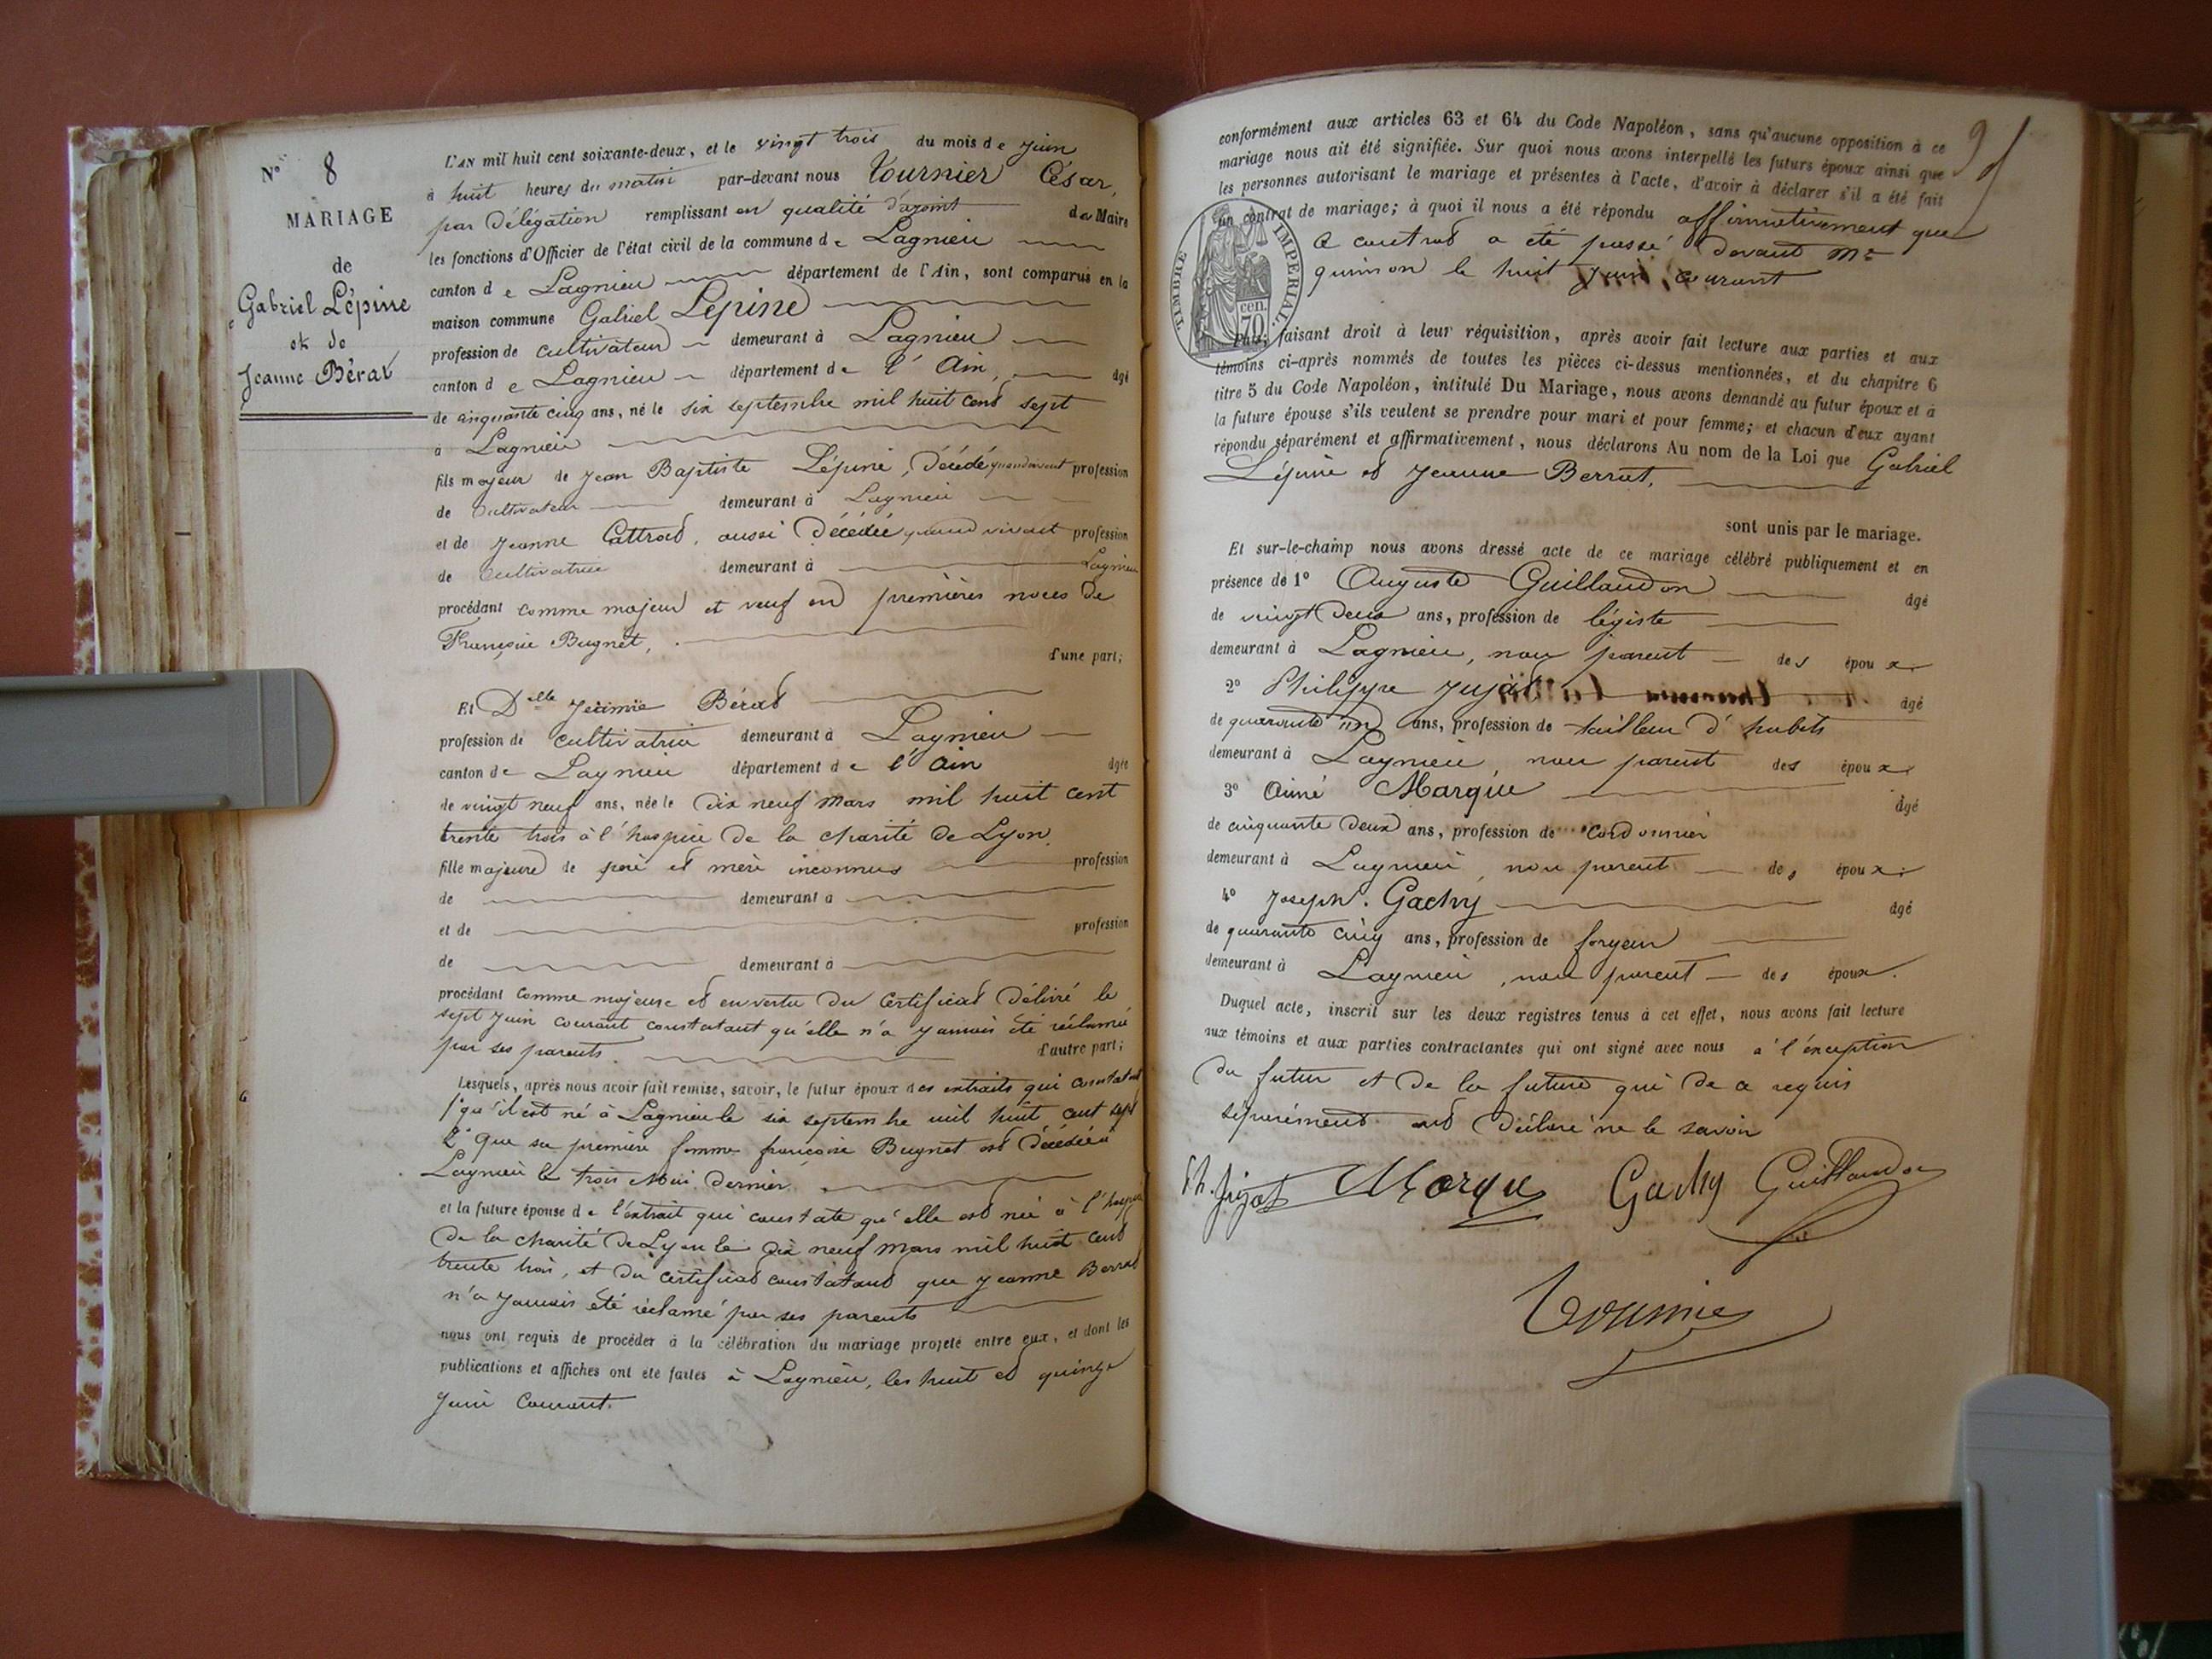 N° 8
MARIAGE
de
Gabriel Lépine
et de
Jeanne Bérat
L'AN mil huit cent soixante-deux, et le vingt trois du mois de juin
à huit heures du matin par-devant nous Tournier César,
par délégation remplissant en qualité d'ajoint de Maire
les fonctions d'Officier de l'état civil de la commune de Lagnieu
canton de Lagnieu département de l'Ain, sont comparus en la
maison commune Gabriel Lépine
profession de cultivateur demeurant à Lagnieu
canton de Lagnieu département de l'Ain, âgé
de cinquante cinq ans, né le six septembre mil huit cent sept
à Lagnieu
fils majeur de Jean Baptiste Lépine, décédé quand vivant profession
de Cultivateur demeurant à Lagnieu
et de Jeanne Cattrad, aussi décédée quand vivait profession
de Cultivatrice demeurant à Lagnieu
procédant comme majeur et veuf en premières noces de
Françoise Bugnet,
d'une part;
Et Delle Jeanne Bérat
profession de cultivatrice demeurant à Lagnieu
canton de Lagnieu département de l'Ain âgée
de vingt neuf ans, née le dix neuf mars mil huit cent
trente trois à l'hospice de la charité de Lyon.
fille majeure de père et mère inconnus profession
de demeurant à
et de profession
de demeurant à
procédant comme majeure et en vertu du certificat délivré le
sept juin courant constatant qu'elle n'a jamais été réclamée
par ses parents. d'autre part;
Lesquels, après nous avoir fait remise, savoir, le futur époux des extraits qui constatent
1° qu'il est né à Lagnieu le six septembre mil huit cent sept
2° Que sa première femme françoise Bugnet est décédée à
Lagnieu le trois Mai dernier.
et la future épouse de l'extrait qui constate qu'elle est née à l'hospice
de la charité de Lyon le dix neuf mars mil huit cent
trente trois, et du certificat constatant que Jeanne Berrat
n'a jamais été réclamé par ses parents
nous ont requis de procéder à la célébration du mariage projeté entre eux, et dont les
publications et affiches ont été faites à Lagnieu, les huit et quinze
juin courant.
conformément aux articles 63 et 64 du Code Napoléon, sans qu'aucune opposition à ce
mariage nous ait été signifiée. Sur quoi nous avons interpellé les futurs époux ainsi que
les personnes autorisant le mariage et présentes à l'acte, d'avoir à déclarer s'il a été fait
un contrat de mariage; à quoi il nous a été répondu affirmativement que
ce contrat a été passé devant Me
quinson le huit juin courant
TIMBRE IMPERIAL
70 cen.
Puis, faisant droit à leur réquisition, après avoir fait lecture aux parties et aux
témoins ci-après nommés de toutes les pièces ci-dessus mentionnées, et du chapitre 6
titre 5 du Code Napoléon, intitulé Du Mariage, nous avons demandé au futur époux et à
la future épouse s'ils veulent se prendre pour mari et pour femme; et chacun d'eux ayant
répondu séparément et affirmativement, nous déclarons Au nom de la Loi que Gabriel
Lépine et Jeanne Berrat,
sont unis par le mariage.
Et sur-le-champ nous avons dressé acte de ce mariage célébré publiquement et en
présence de 1° Auguste Guillaudon âgé
de vingt deux ans, profession de légiste
demeurant à Lagnieu, non parent des époux.
2° Philippe Jujat âgé
de quarante un ans, profession de tailleur d'habits
demeurant à Lagnieu, non parent des époux.
3° Aimé Marque âgé
de cinquante deux ans, profession de cordonnier
demeurant à Lagnieu, non parent des époux.
4° Joseph Gachy âgé
de quarante cinq ans, profession de forgeur
demeurant à Lagnieu, non parent des époux.
Duquel acte, inscrit sur les deux registres tenus à cet effet, nous avons fait lecture
aux témoins et aux parties contractantes qui ont signé avec nous à l'exception
du futur et de la future qui de ce requis
séparément ont déclaré ne le savoir
Ph. Jujat Marque Gachy Guillaudon
Tournier